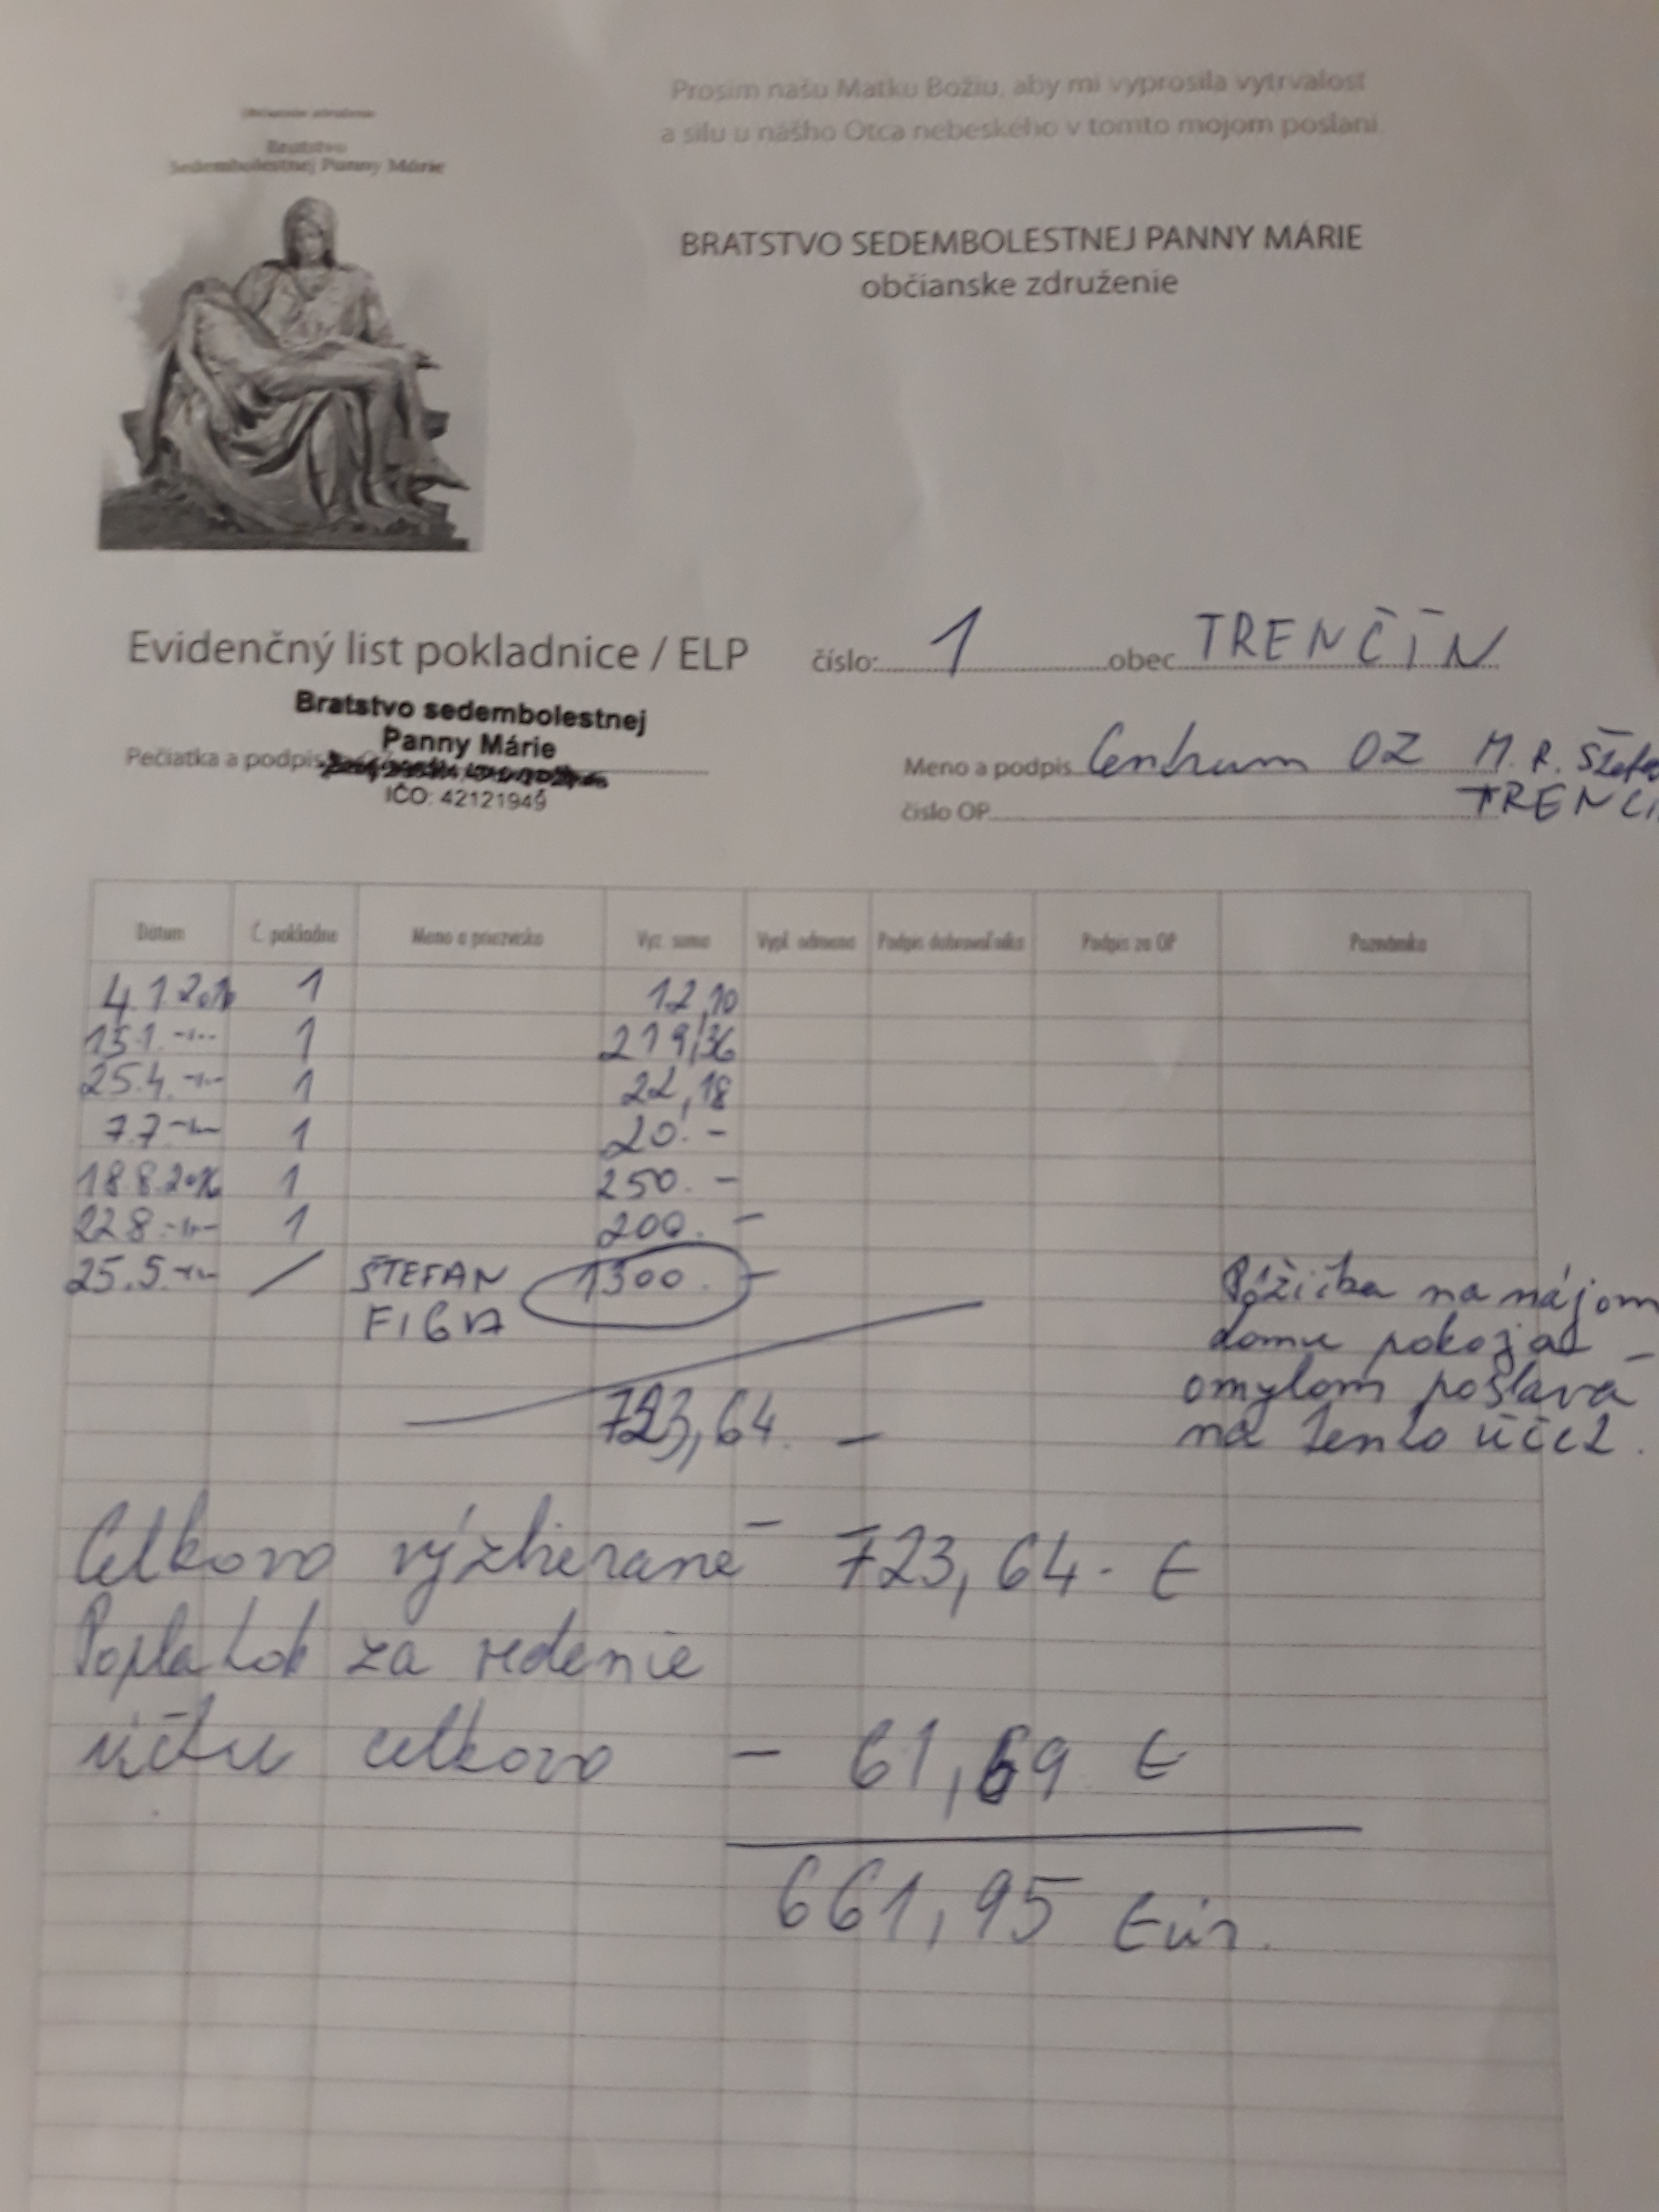 Občianske združenie
Bratstvo
Sedembolestnej Panny Márie
Prosím našu Matku Božiu, aby mi vyprosila vytrvalosť
a silu u nášho Otca nebeského v tomto mojom poslaní.
BRATSTVO SEDEMBOLESTNEJ PANNY MÁRIE
občianske združenie
Evidenčný list pokladnice / ELP číslo: 1 obec TRENČÍN
Bratstvo sedembolestnej
Panny Márie
Pečiatka a podpis
IČO: 42121949
Meno a podpis Centrum OZ M. R. Štefá
TRENČÍ
číslo OP
Dátum Č. pokladne Meno a priezvisko Vyz. suma Vypl. odmena Podpis dobrovoľníka Podpis za OP Poznámka
4.1.2016 1 12,10
13.1. -||- 1 219,36
25.4. -||- 1 22,18
7.7 -||- 1 20. -
18.8.2016 1 250. -
22.8. -||- 1 200. -
25.5. -||- / ŠTEFAN 1300. - Pôžička na nájom
FIGVA domu pokoja -
omylom poslaná
723,64. - na tento účet.
Celkovo vyzbierané - 723,64. €
Poplatok za vedenie
účtu celkovo - 61,69 €
661,95 Eur.